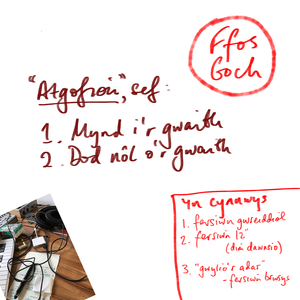 Ffos
Goch
"Atgofion", sef:
1. Mynd i'r gwaith
2. Dod nôl o'r gwaith
Yn cynnwys
1. fersiwn gwreiddiol
2. fersiwn 12"
(di
3. "gwylio'r adar"
- fersiwn